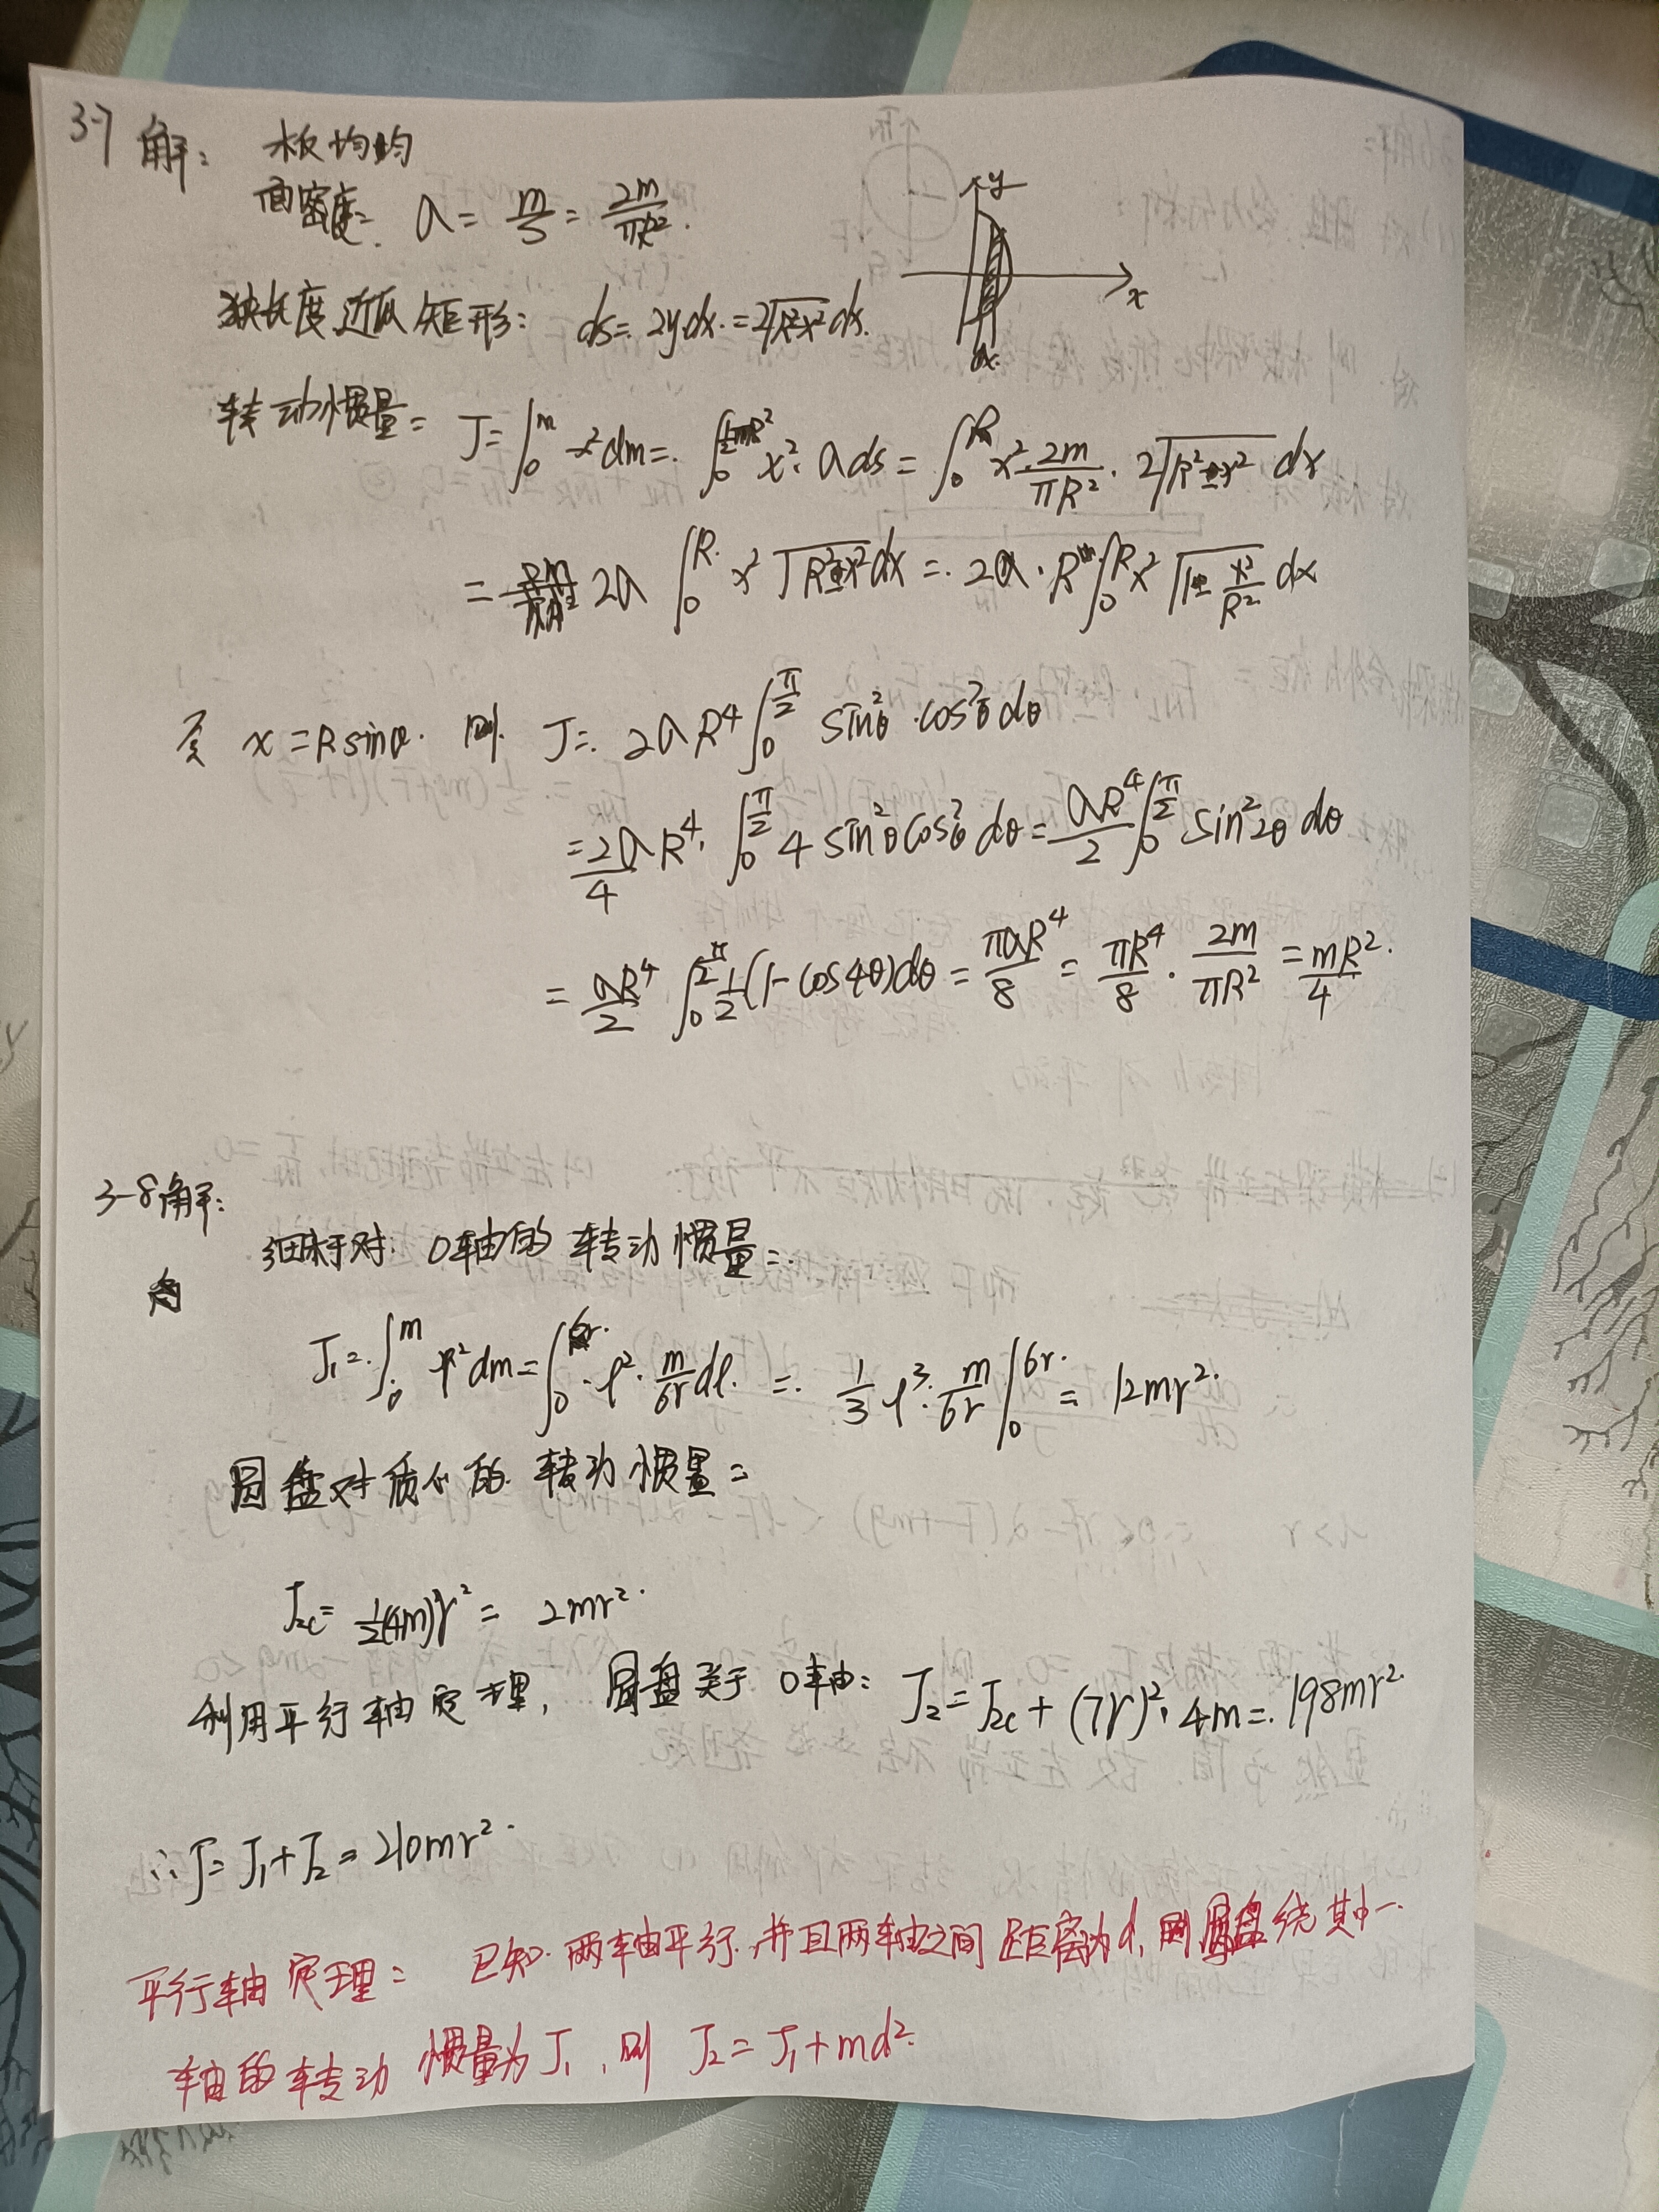 3-7 解: 木板均匀
面密度: a = m/S = 2m/πR².
y
x
dx.
狭长度近似矩形: ds = 2ydx. = 2√(R²-x²) dx.
转动惯量 = J = ∫₀^m x²dm = ∫₀ x²·a ds = ∫₀^R x² 2m/πR² · 2√(R²-x²) dx
= 2a ∫₀^R x² √(R²-x²) dx = 2a·R ∫₀^R x² √(1-x²/R²) dx
令 x = Rsinθ. 则. J = 2aR⁴ ∫₀^(π/2) sin²θ·cos²θ dθ
= 2a/4 R⁴. ∫₀^(π/2) 4sin²θcos²θ dθ = aR⁴/2 ∫₀^(π/2) sin²2θ dθ
= aR⁴/2 ∫₀^(π/2) 1/2(1-cos4θ)dθ = πaR⁴/8 = πR⁴/8 · 2m/πR² = mR²/4.
3-8解:
细杆对. O轴的转动惯量=.
J₁ = ∫₀^m r²dm = ∫₀^6r l²·m/6r dl. = 1/3 l³·m/6r |₀^6r = 12mr².
圆盘对质心的转动惯量=
J₂c = 1/2(4m)r² = 2mr².
利用平行轴定理, 圆盘关于O轴: J₂ = J₂c + (7r)²·4m = 198mr².
∴J = J₁+J₂ = 210mr².
平行轴定理: 已知两轴平行,并且两轴之间距离为d, 则圆盘绕其中一
轴的转动惯量为J₁, 则 J₂ = J₁+md².